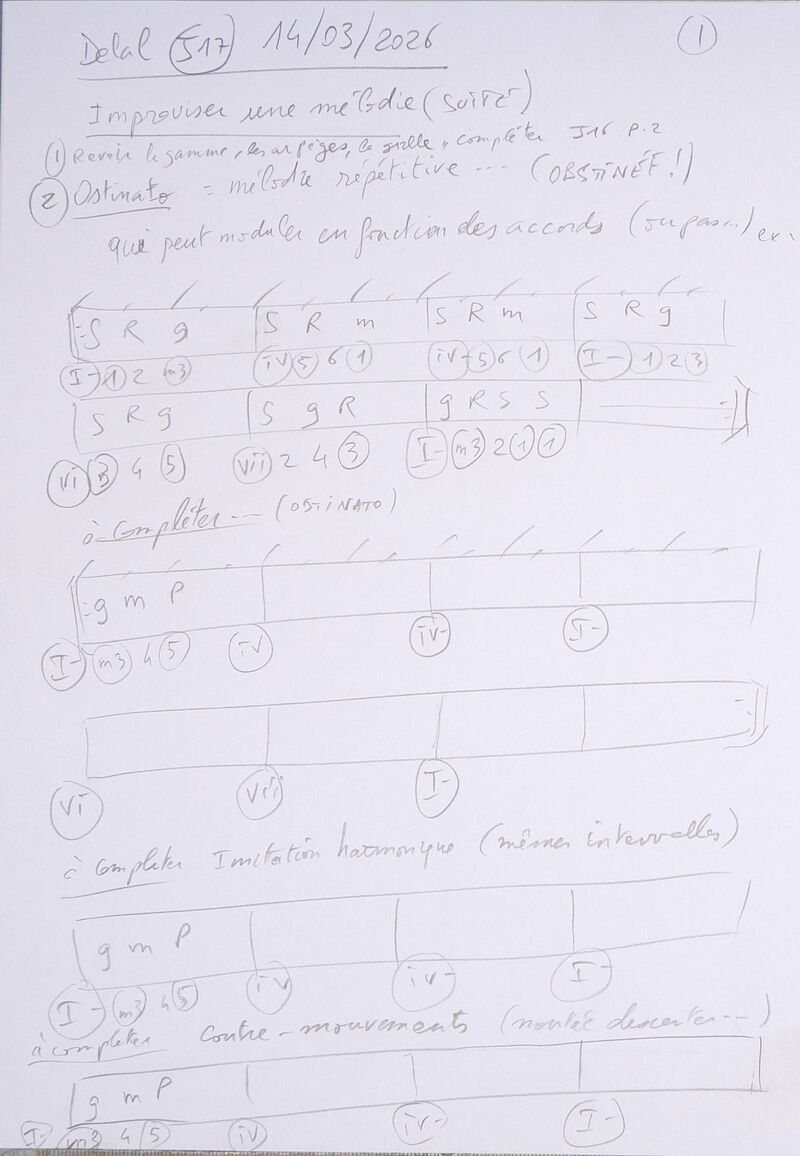 Delal J17 14/03/2026 1
Improviser une mélodie (SUITE)
1 Revoir la gamme, les arpèges, la grille, compléter J16 P.2
2 Ostinato = mélodie répétitive --- (OBSTINÉE!)
qui peut moduler en fonction des accords (ou pas...) ex.
S R g S R m S R m S R g
I- 1 2 m3 iv 5 6 1 iv- 5 6 1 I- 1 2 3
S R g S g R g R S S
vi 3 4 5 vii 2 4 3 I- m3 2 1 1
à compléter --- (OSTINATO)
g m P
I- m3 4 5 iv iv- I-
vi vii I-
à compléter Imitation harmonique (mêmes intervalles)
g m P
I- m3 4 5 iv iv- I-
à compléter contre-mouvements (montée descentes ---)
g m P
I- m3 4 5 iv iv- I-